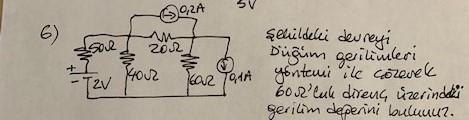 5V
0,2A
6)
50Ω
20Ω
+
-
2V
40Ω
60Ω
0,1A
Şekildeki devreyi
Düğüm gerilimleri
yöntemi ile çözerek
60Ω'luk direnç üzerindeki
gerilim değerini bulunuz.